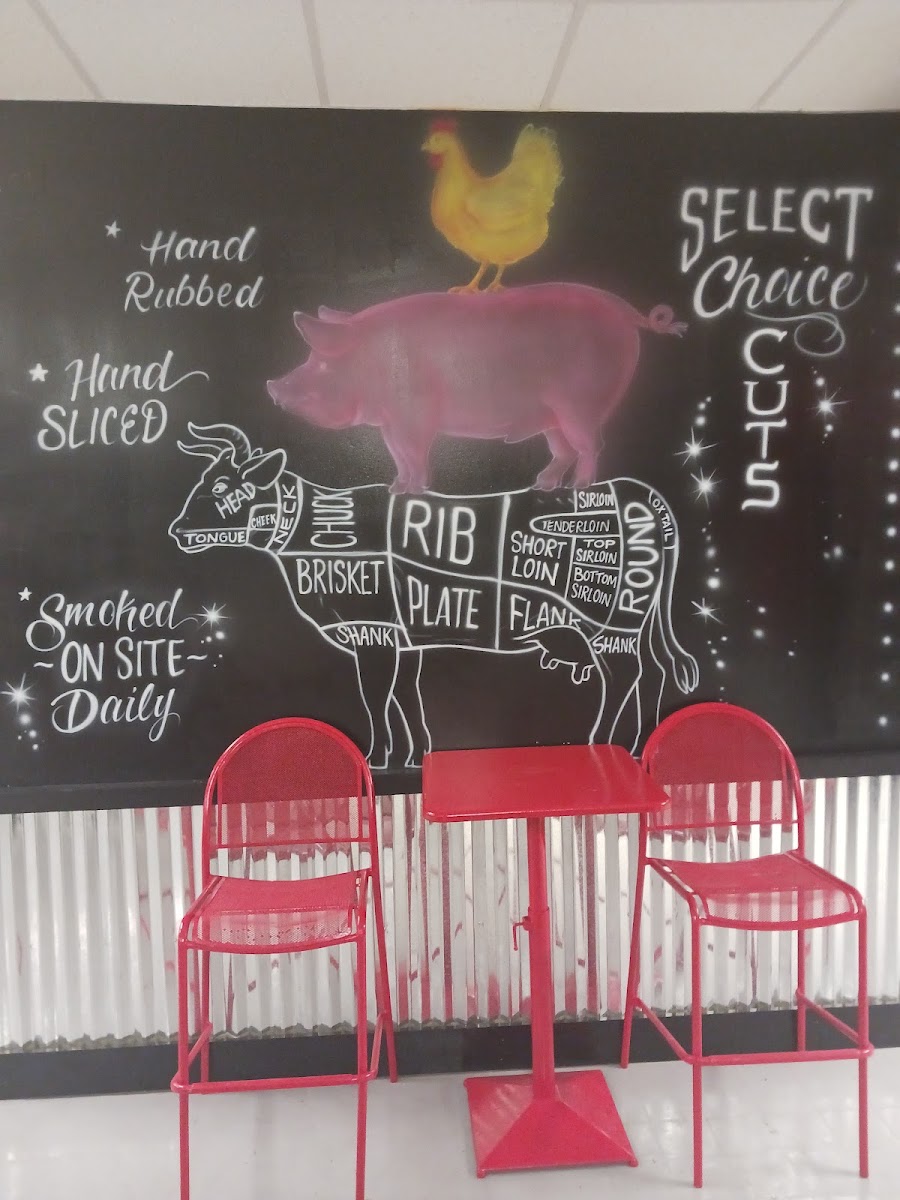 Hand
Rubbed
Hand
SLICED
Smoked
~ON SITE~
Daily
SELECT
Choice
CUTS
HEAD
CHEEK
TONGUE
NECK
CHUCK
BRISKET
SHANK
RIB
PLATE
SHORT
LOIN
FLANK
SIRLOIN
TENDERLOIN
TOP
SIRLOIN
BOTTOM
SIRLOIN
ROUND
OXTAIL
SHANK